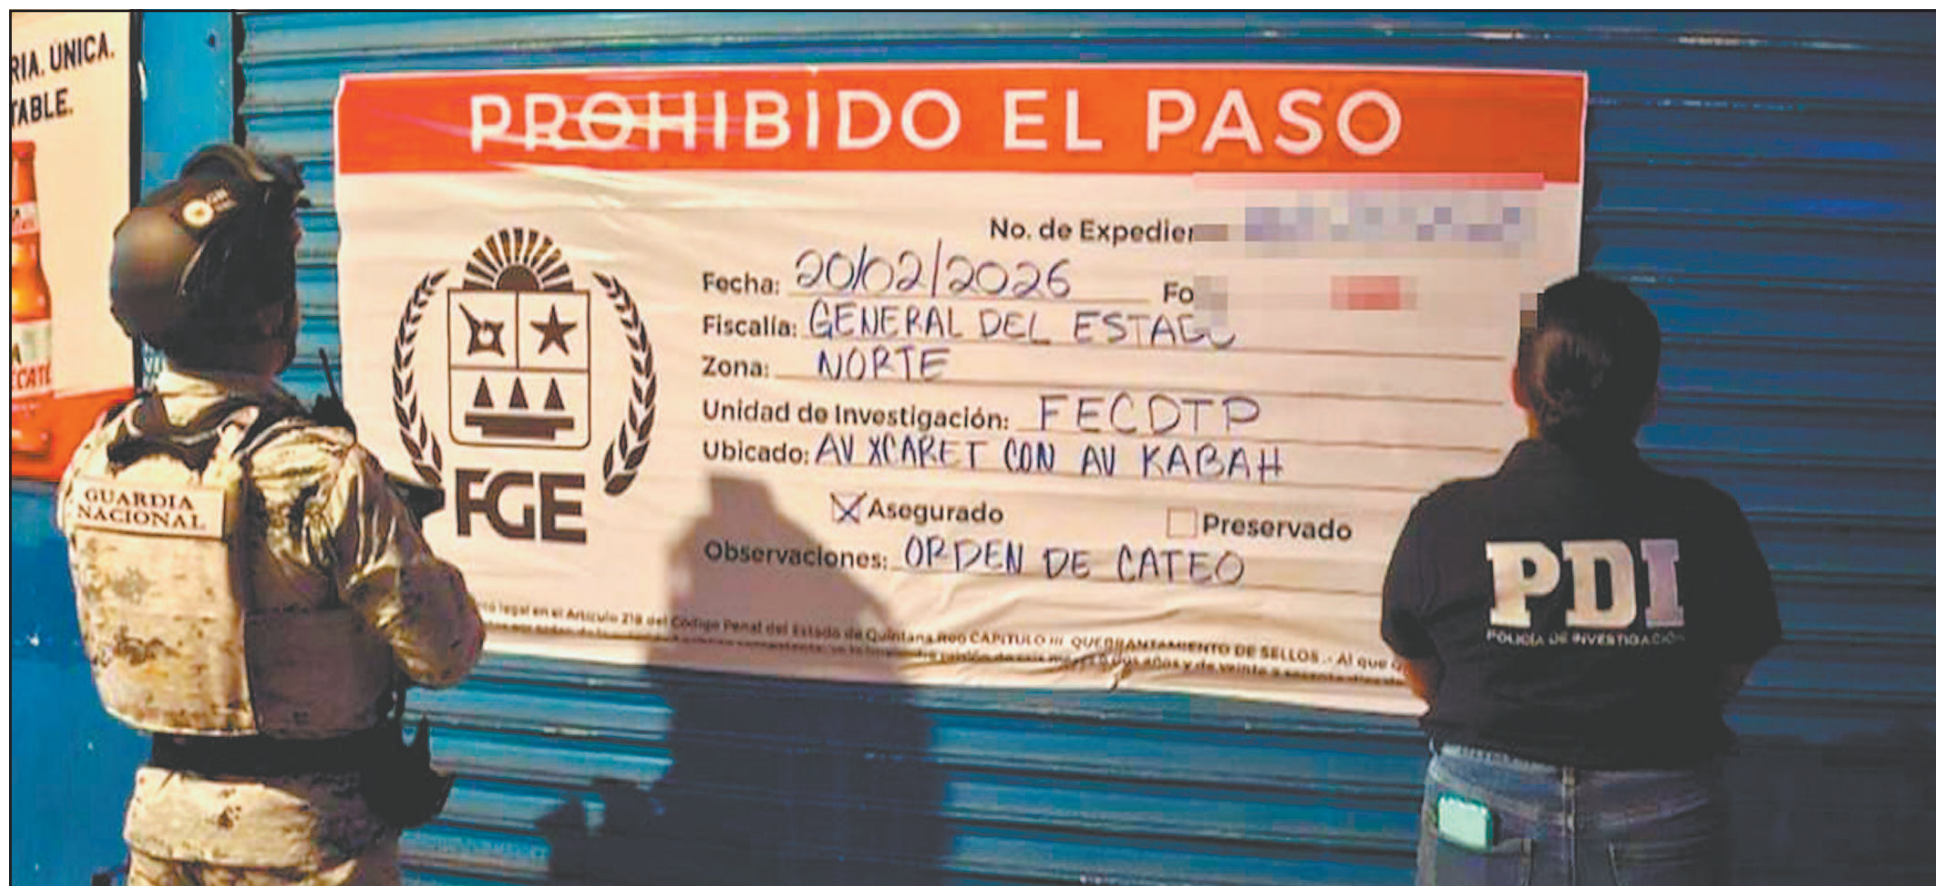 RIA. UNICA.
TABLE.
PROHIBIDO EL PASO
No. de Expedien
Fecha: 20/02/2026 Fo
Fiscalía: GENERAL DEL ESTADO
Zona: NORTE
Unidad de Investigación: FECDTP
Ubicado: AV XCARET CON AV KABAH
Asegurado Preservado
Observaciones: ORDEN DE CATEO
FGE
legal en el Artículo 218 del Código Penal del Estado de Quintana Roo CAPITULO III QUEBRANTAMIENTO DE SELLOS.- Al que
prisión de seis meses a dos años y de veinte a sesenta días
GUARDIA
NACIONAL
PDI
POLICÍA DE INVESTIGACIÓN
CATE